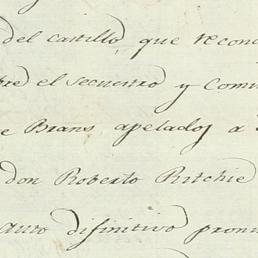 del castillo, que recono
bre el secuestro y Comi
e Brans, apelados a
don Roberto Ritchie
auto difinitivo pronu